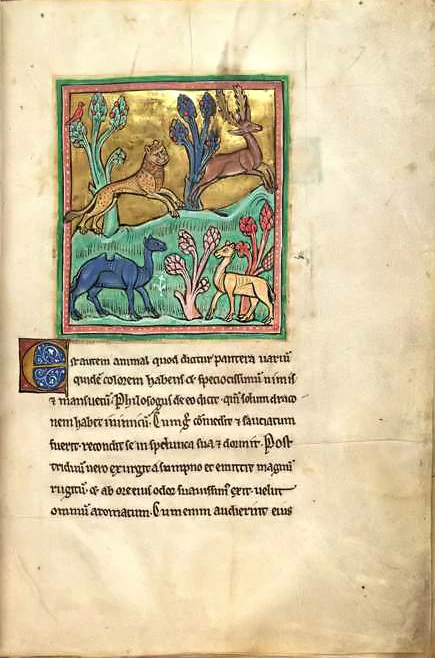 Est autem animal quod dicitur pantera uariũ
quidẽ colorem habens & speciocissimũ nimis
⁊ mansuetũ. Philosogus de eo dicit. qm̃ solum draco
nem habet inimicũ. Cumq̃ comedit & saciatum
fuerit. recondit se in spelunca sua ⁊ dormit. Post
triduũ uero exurgit a sumpno et emittit magnũ
rugitũ. & ab ore eius odor suauissimꝰ exit. uelut
omniũ aromatum. Cum enim audierint eius